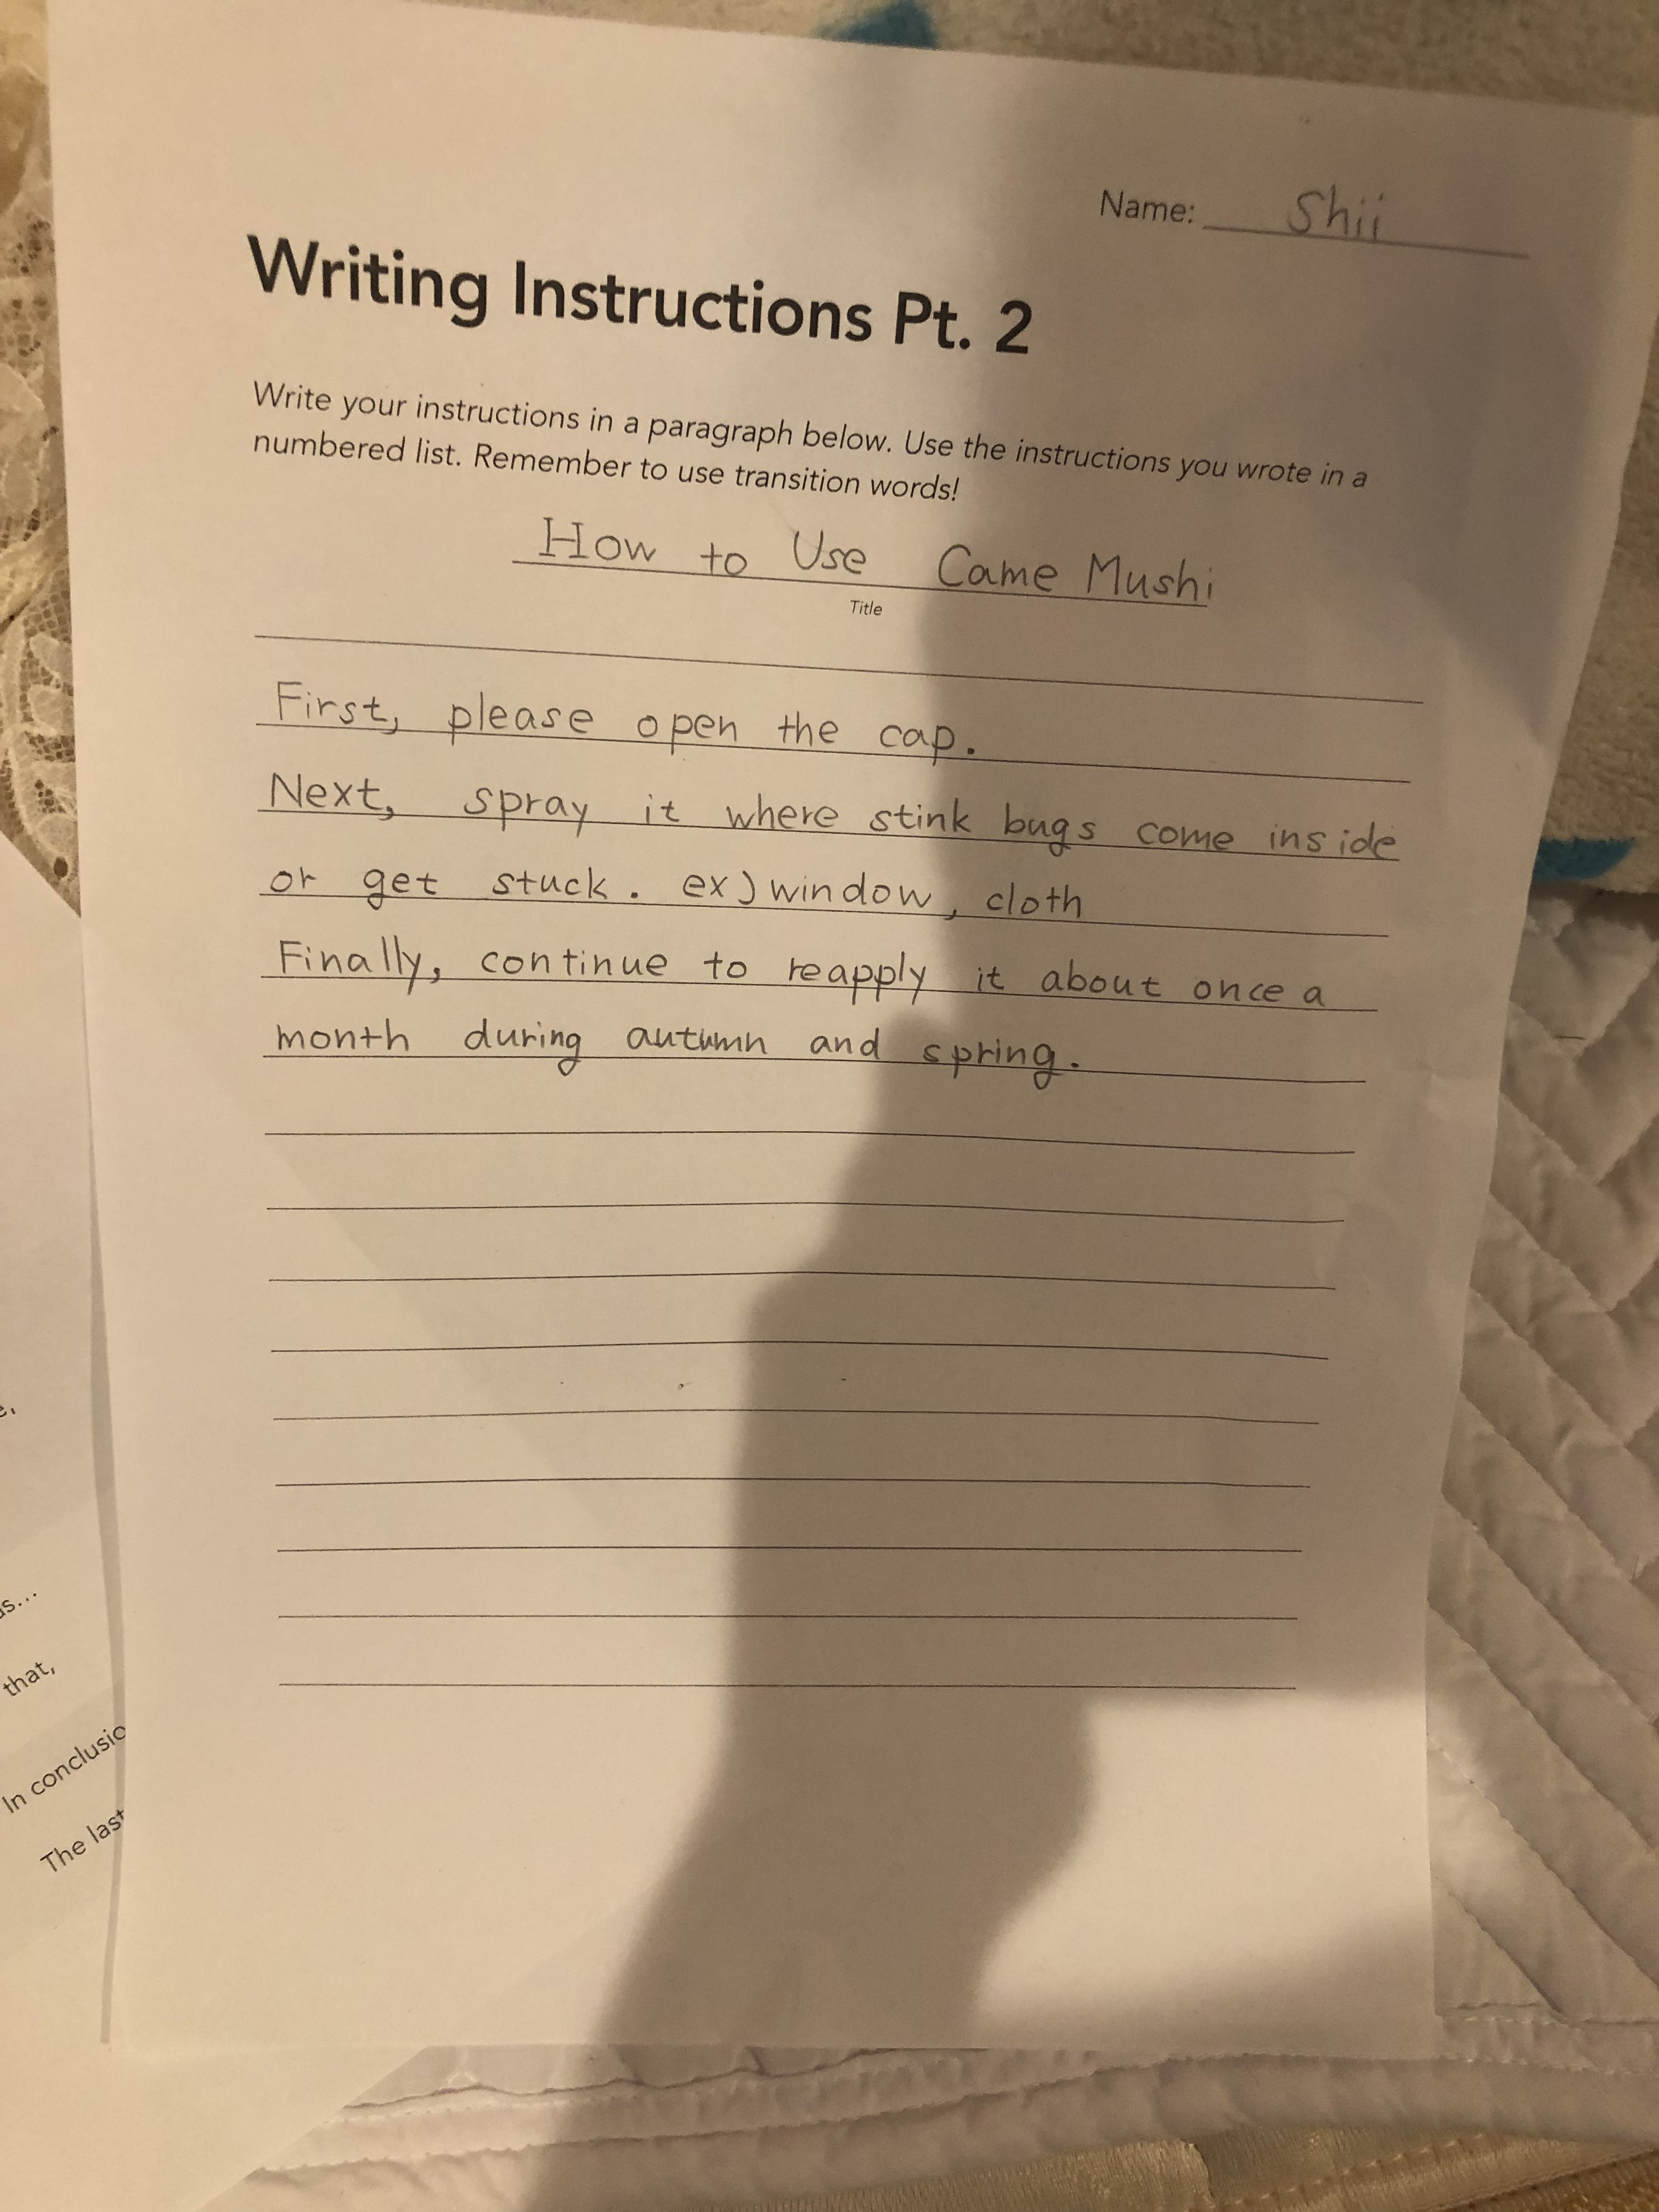 Name: Shii
Writing Instructions Pt. 2
Write your instructions in a paragraph below. Use the instructions you wrote in a
numbered list. Remember to use transition words!
How to Use Came Mushi
Title
First, please open the cap.
Next, spray it where stink bugs come inside
or get stuck. ex) window, cloth
Finally, continue to reapply it about once a
month during autumn and spring.
that,
In conclusio
The last